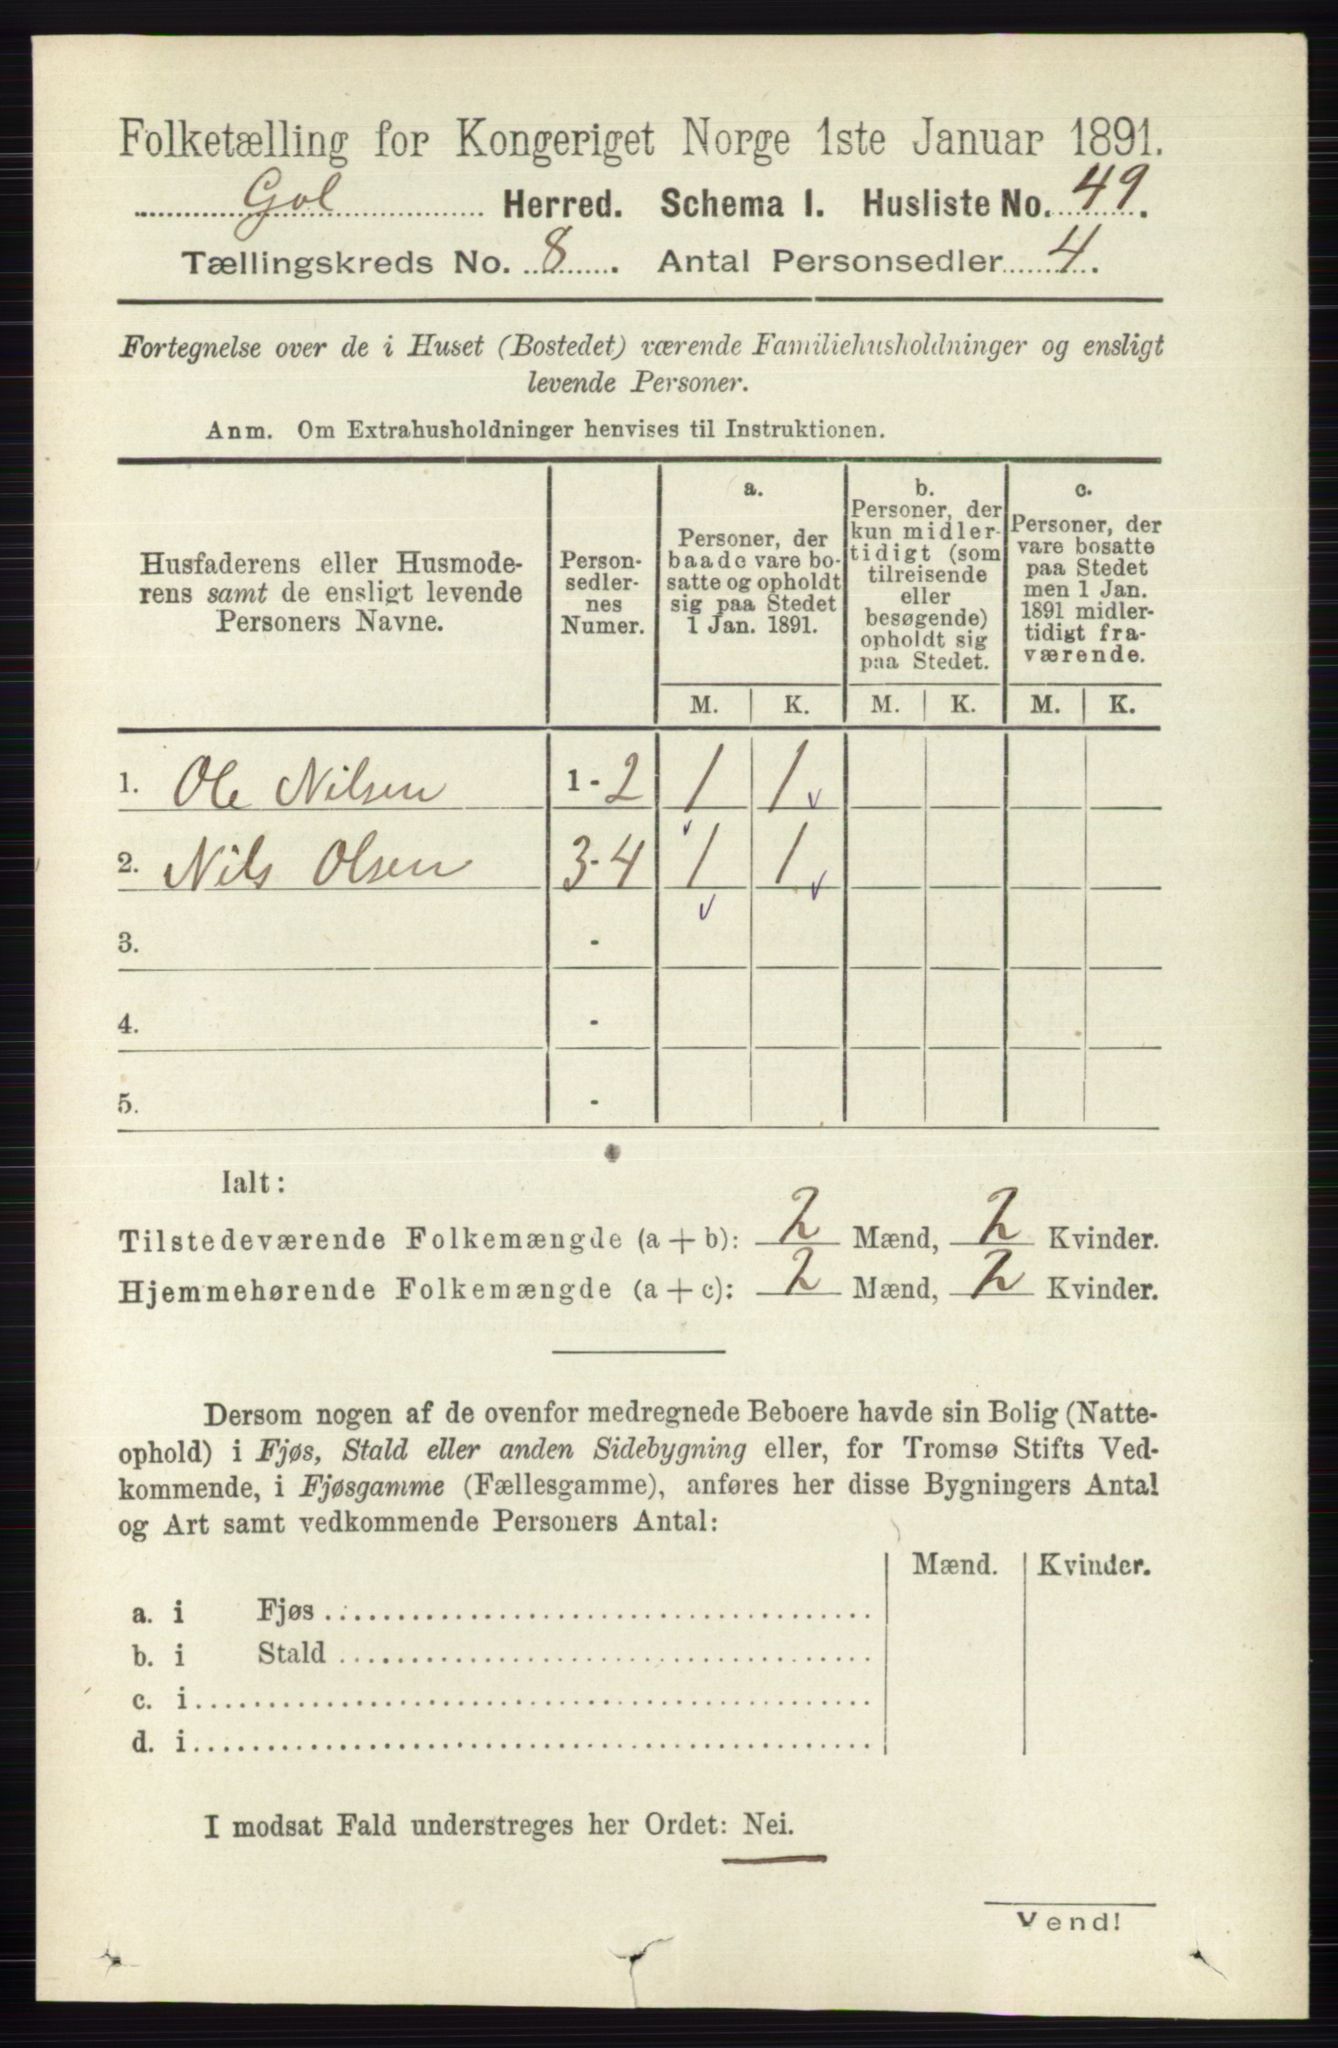 Folketælling for Kongeriget Norge 1ste Januar 1891.
Gol Herred. Schema I. Husliste No. 49.
Tællingskreds No. 8. Antal Personsedler 4.
Fortegnelse over de i Huset (Bostedet) værende Familiehusholdninger og ensligt
levende Personer.
Anm. Om Extrahusholdninger henvises til Instruktionen.
Husfaderens eller Husmode-
rens samt de ensligt levende
Personers Navne.
Person-
sedler-
nes
Numer.
a.
Personer, der
baade vare bo-
satte og opholdt
sig paa Stedet
1 Jan. 1891.
b.
Personer, der
kun midler-
tidigt (som
tilreisende
eller
besøgende)
opholdt sig
paa Stedet.
c.
Personer, der
vare bosatte
paa Stedet
men 1 Jan.
1891 midler-
tidigt fra-
værende.
M. K. M. K. M. K.
1. Ole Nilsen 1-2 1 1
2. Nils Olsen 3-4 1 1
3. -
4. -
5. -
Ialt:
Tilstedeværende Folkemængde (a + b): 2 Mænd, 2 Kvinder.
Hjemmehørende Folkemængde (a + c): 2 Mænd, 2 Kvinder.
Dersom nogen af de ovenfor medregnede Beboere havde sin Bolig (Natte-
ophold) i Fjøs, Stald eller anden Sidebygning eller, for Tromsø Stifts Ved-
kommende, i Fjøsgamme (Fællesgamme), anføres her disse Bygningers Antal
og Art samt vedkommende Personers Antal:
Mænd. Kvinder.
a. i Fjøs
b. i Stald
c. i
d. i
I modsat Fald understreges her Ordet: Nei.
Vend!